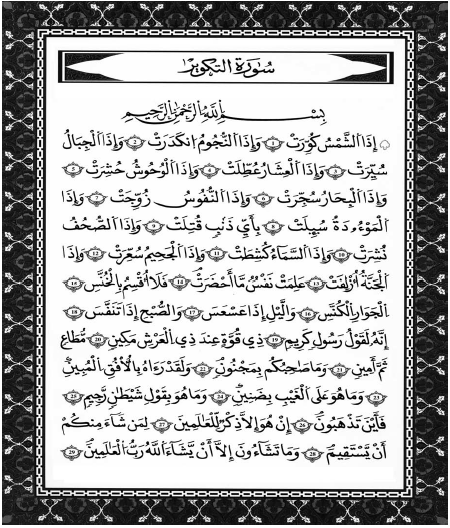 سُورَةُ التَّكْوِيرِ
بِسْمِ اللَّهِ الرَّحْمَٰنِ الرَّحِيمِ
إِذَا الشَّمْسُ كُوِّرَتْ ١ وَإِذَا النُّجُومُ انكَدَرَتْ ٢ وَإِذَا الْجِبَالُ
سُيِّرَتْ ٣ وَإِذَا الْعِشَارُ عُطِّلَتْ ٤ وَإِذَا الْوُحُوشُ حُشِرَتْ ٥
وَإِذَا الْبِحَارُ سُجِّرَتْ ٦ وَإِذَا النُّفُوسُ زُوِّجَتْ ٧ وَإِذَا
الْمَوْءُودَةُ سُئِلَتْ ٨ بِأَيِّ ذَنبٍ قُتِلَتْ ٩ وَإِذَا الصُّحُفُ
نُشِرَتْ ١٠ وَإِذَا السَّمَاءُ كُشِطَتْ ١١ وَإِذَا الْجَحِيمُ سُعِّرَتْ ١٢ وَإِذَا
الْجَنَّةُ أُزْلِفَتْ ١٣ عَلِمَتْ نَفْسٌ مَّا أَحْضَرَتْ ١٤ فَلَا أُقْسِمُ بِالْخُنَّسِ ١٥
الْجَوَارِ الْكُنَّسِ ١٦ وَالَّيْلِ إِذَا عَسْعَسَ ١٧ وَالصُّبْحِ إِذَا تَنَفَّسَ ١٨
إِنَّهُ لَقَوْلُ رَسُولٍ كَرِيمٍ ١٩ ذِي قُوَّةٍ عِندَ ذِي الْعَرْشِ مَكِينٍ ٢٠ مُّطَاعٍ
ثَمَّ أَمِينٍ ٢١ وَمَا صَاحِبُكُم بِمَجْنُونٍ ٢٢ وَلَقَدْ رَءَاهُ بِالْأُفُقِ الْمُبِينِ
٢٣ وَمَا هُوَ عَلَى الْغَيْبِ بِضَنِينٍ ٢٤ وَمَا هُوَ بِقَوْلِ شَيْطَانٍ رَّجِيمٍ ٢٥
فَأَيْنَ تَذْهَبُونَ ٢٦ إِنْ هُوَ إِلَّا ذِكْرٌ لِّلْعَالَمِينَ ٢٧ لِمَن شَاءَ مِنكُمْ
أَن يَسْتَقِيمَ ٢٨ وَمَا تَشَاءُونَ إِلَّا أَن يَشَاءَ اللَّهُ رَبُّ الْعَالَمِينَ ٢٩